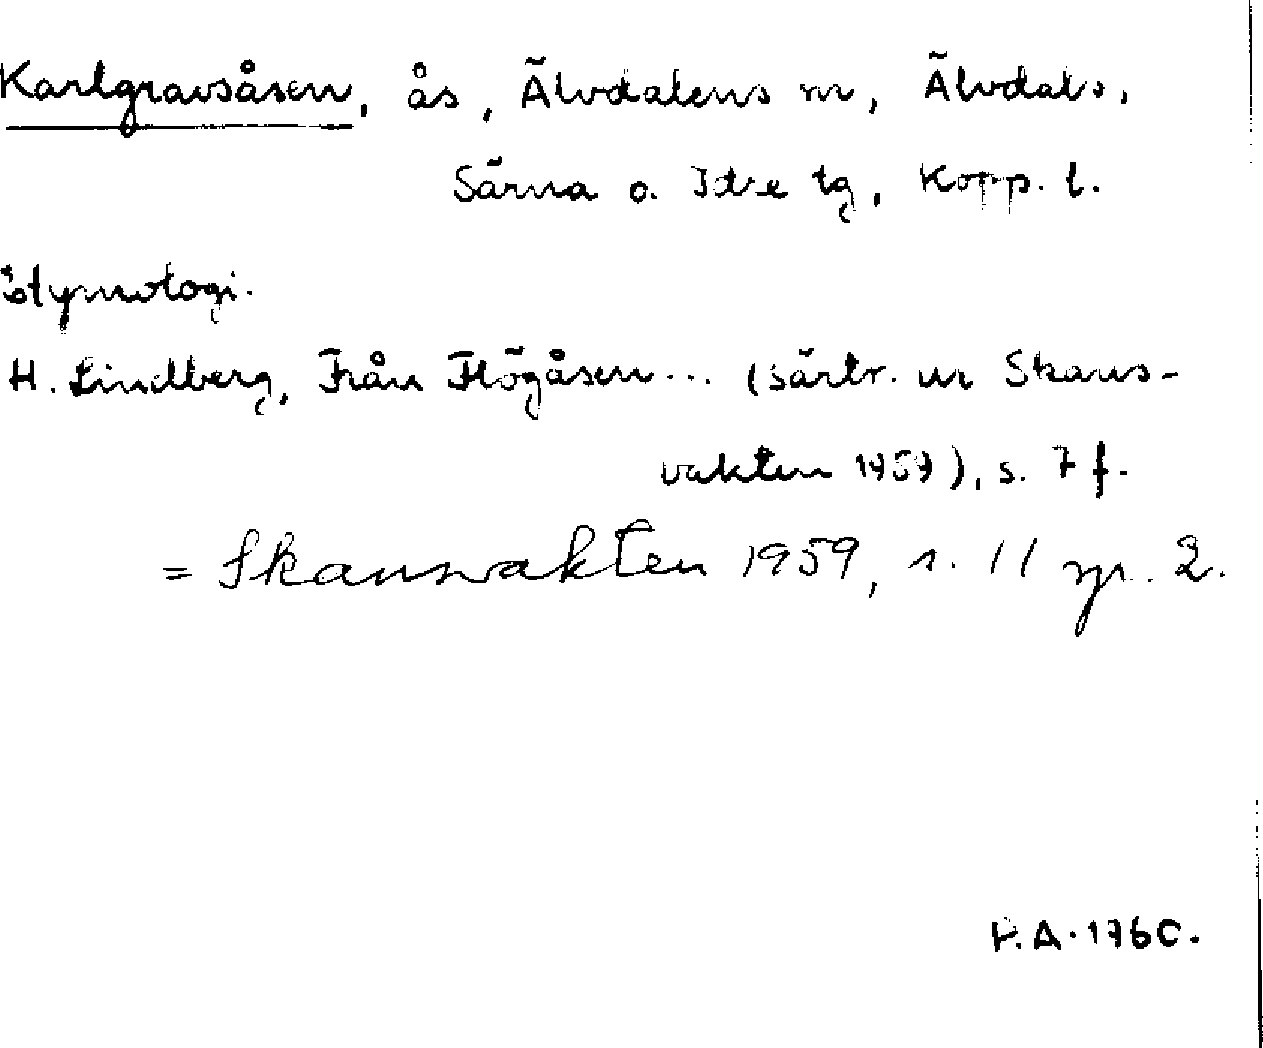 Karlgravsåsen, ås, Älvdalens sn, Älvdals,
Särna o. Idre tg, Kopp. l.
Etymologi.
H. Lindberg, Från Högåsen... (särtr. ur Skans-
vakten 1959), s. 7 f.
= Skansvakten 1959, s. 11 sp. 2.
P.A. 1960.